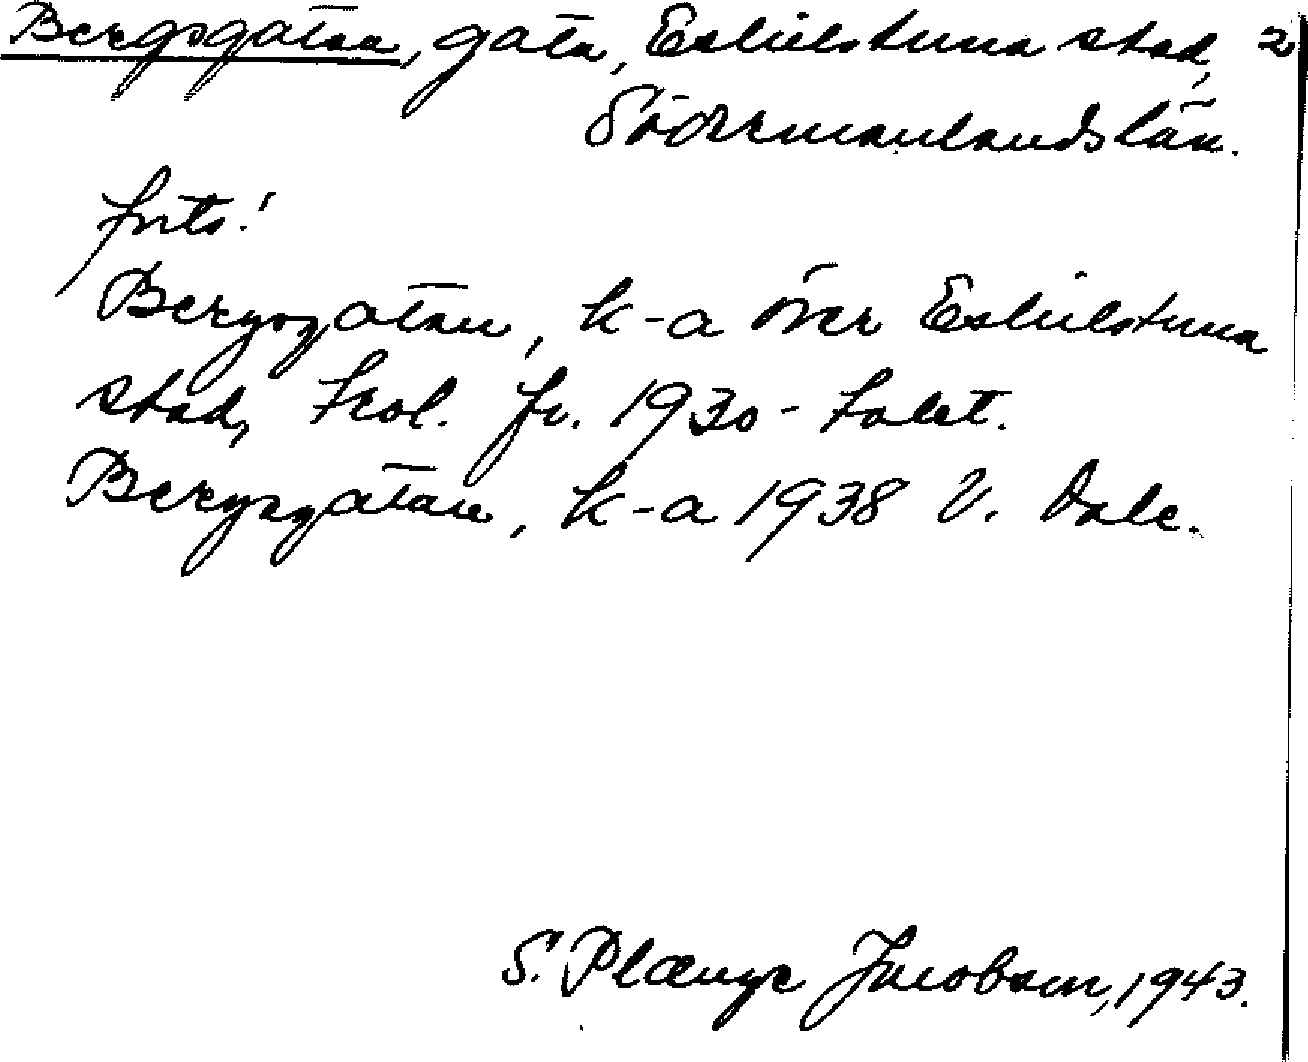 Bergsgatan, gata, Eskilstuna stad, 2
Södermanlands län.
forts.!
Bergsgatan, k-a över Eskilstuna
stad, trol. fr. 1930-talet.
Bergsgatan, k-a 1938 V. Dale.
S. Plænge Jacobson, 1943.